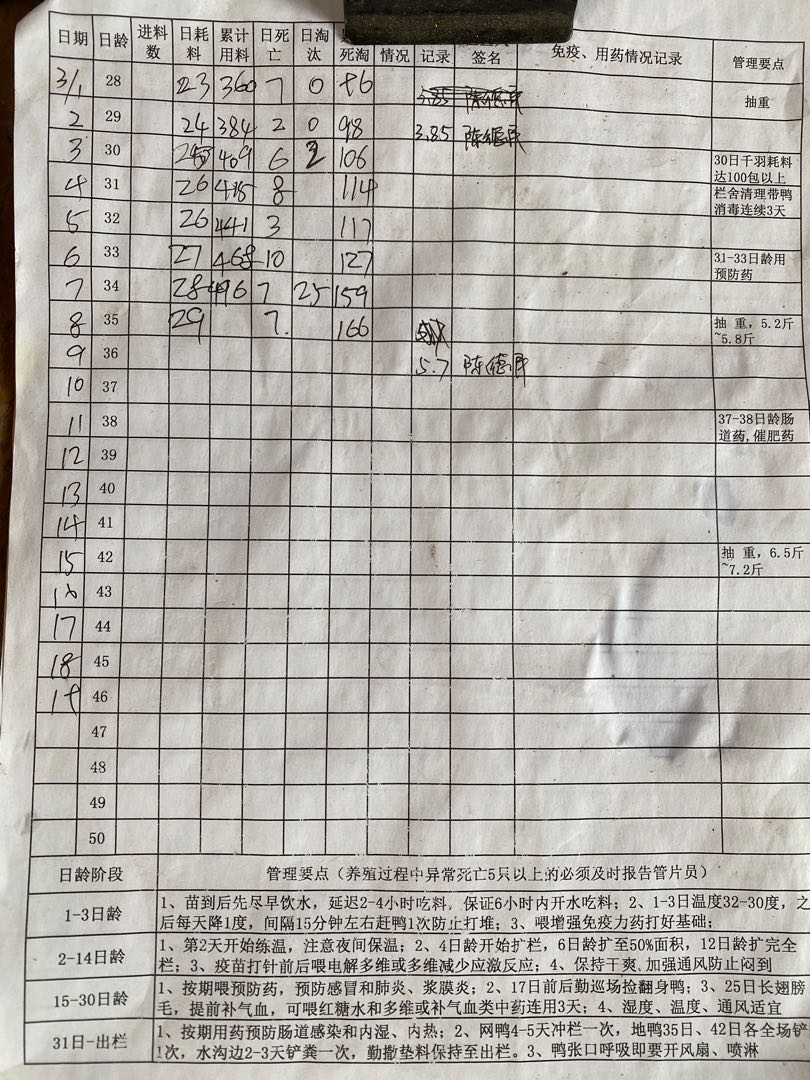 日期 日龄 进料数 日耗料 累计用料 日死亡 日淘汰 死淘 情况 记录 签名 免疫、用药情况记录 管理要点
3/1 28 23 360 7 0 96 3.85 陈德民 抽重
2 29 24 384 2 0 98 3.85 陈德民
3 30 409 6 2 106 30日千羽耗料达100包以上
4 31 26 415 8 114 栏舍清理带鸭消毒连续3天
5 32 26 441 3 117
6 33 27 468 10 127 31-33日龄用预防药
7 34 28 496 7 25 159
8 35 29 7. 166 抽 重，5.2斤~5.8斤
9 36 5.7 陈德民
10 37
11 38 37-38日龄肠道药,催肥药
12 39
13 40
14 41
15 42 抽 重，6.5斤~7.2斤
16 43
17 44
18 45
19 46
47
48
49
50
日龄阶段 管理要点（养殖过程中异常死亡5只以上的必须及时报告管片员）
1-3日龄 1、苗到后先尽早饮水，延迟2-4小时吃料，保证6小时内开水吃料；2、1-3日温度32-30度，之
后每天降1度，间隔15分钟左右赶鸭1次防止打堆；3、喂增强免疫力药打好基础；
2-14日龄 1、第2天开始练温，注意夜间保温；2、4日龄开始扩栏，6日龄扩至50%面积，12日龄扩完全
栏；3、疫苗打针前后喂电解多维或多维减少应激反应；4、保持干爽，加强通风防止闷到
15-30日龄 1、按期喂预防药，预防感冒和肺炎、浆膜炎；2、17日前后勤巡场捡翻身鸭；3、25日长翅膀
毛，提前补气血，可喂红糖水和多维或补气血类中药连用3天；4、湿度、温度、通风适宜
31日-出栏 1、按期用药预防肠道感染和内湿、内热；2、网鸭4-5天冲栏一次，地鸭35日、42日各全场铲
1次，水沟边2-3天铲粪一次，勤撒垫料保持至出栏。3、鸭张口呼吸即要开风扇、喷淋